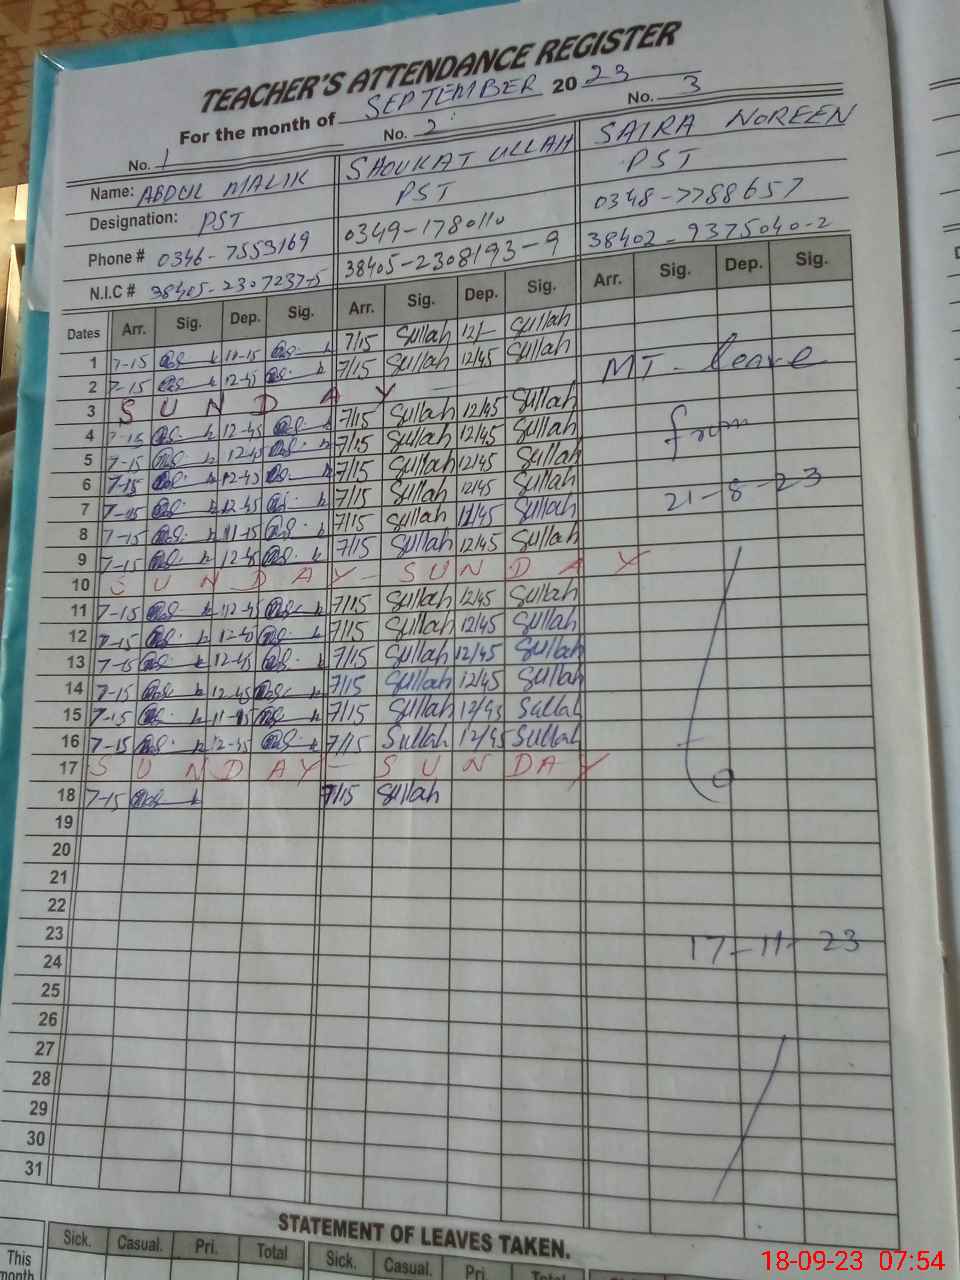 TEACHER'S ATTENDANCE REGISTER
For the month of SEPTEMBER 2023
No. 1 No. 2 No. 3
Name: ABDUL MALIK SHOUKAT ULLAH SAIRA NOREEN
Designation: PST PST PST
Phone # 0346-7553169 0349-1780110 0348-7788657
N.I.C # 38405-2307237-5 38405-2308193-9 38402-9375040-2
Dates Arr. Sig. Dep. Sig. Arr. Sig. Dep. Sig. Arr. Sig. Dep. Sig.
1 7-15 11-15 7/15 Sullah 12/- Sullah
2 7-15 12-45 7/15 Sullah 12/45 Sullah MT-leave
3 SUNDAY
4 7-15 12-45 7/15 Sullah 12/45 Sullah from
5 7-15 12-45 7/15 Sullah 12/45 Sullah
6 7-15 12-45 7/15 Sullah 12/45 Sullah
7 7-15 12-45 7/15 Sullah 12/45 Sullah 21-8-23
8 7-15 11-15 7/15 Sullah 11/45 Sullah
9 7-15 12-45 7/15 Sullah 12/45 Sullah
10 SUNDAY - SUNDAY
11 7-15 12-45 7/15 Sullah 12/45 Sullah
12 7-15 12-45 7/15 Sullah 12/45 Sullah
13 7-15 12-45 7/15 Sullah 12/45 Sullah
14 7-15 12-45 7/15 Sullah 12/45 Sullah
15 7-15 11-15 7/15 Sullah 12/45 Sullah
16 7-15 12-45 7/15 Sullah 12/45 Sullah
17 SUNDAY - SUNDAY
18 7-15 7/15 Sullah
19
20
21
22
23 17-11-23
24
25
26
27
28
29
30
31
STATEMENT OF LEAVES TAKEN.
Sick. Casual. Pri. Total Sick. Casual. Pri. Total
This month
18-09-23 07:54